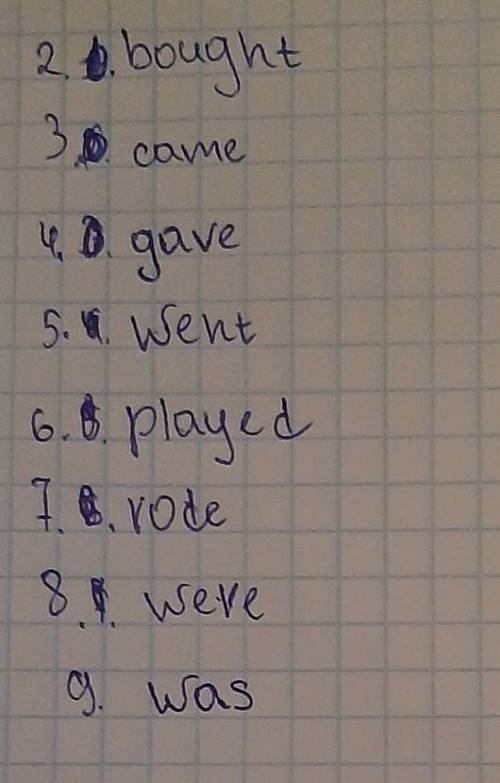 2. bought
3. came
4. gave
5. went
6. played
7. rode
8. were
9. was